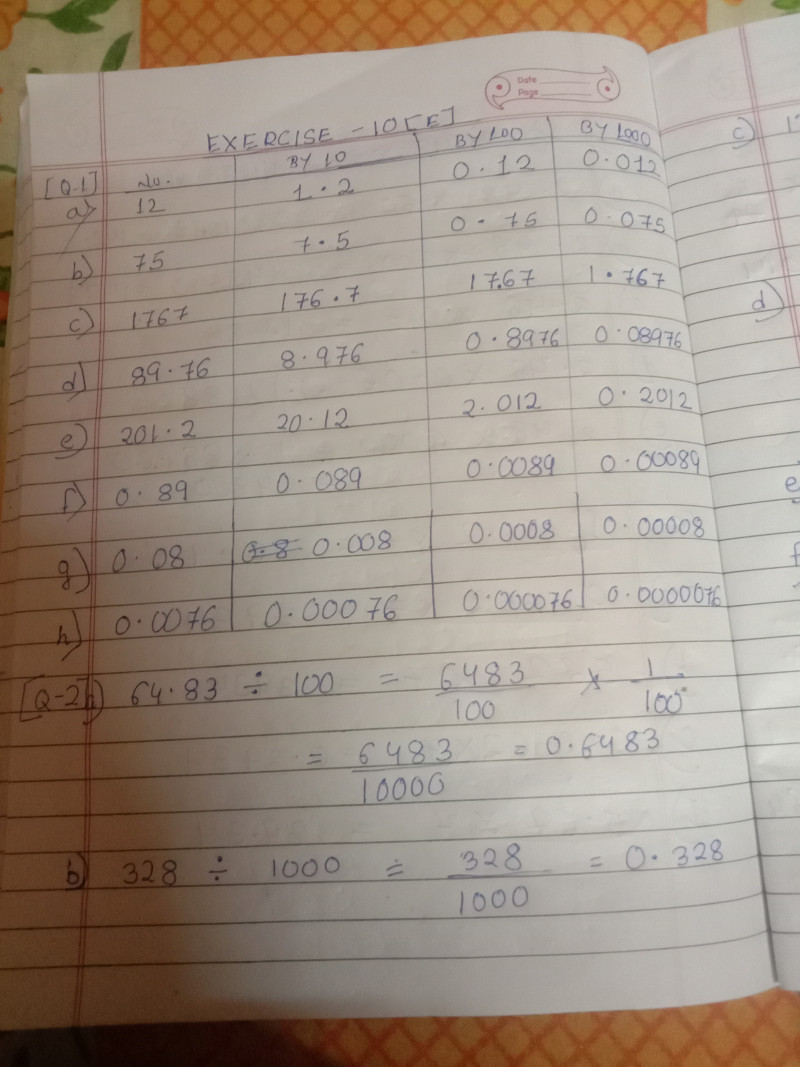 Date
Page
EXERCISE - 10[E]
[Q.1] No. BY 10 BY 100 BY 1000
a) 12 1.2 0.12 0.012
b) 75 7.5 0.75 0.075
c) 1767 176.7 17.67 1.767
d) 89.76 8.976 0.8976 0.08976
e) 201.2 20.12 2.012 0.2012
f) 0.89 0.089 0.0089 0.00089
g) 0.08 0.008 0.0008 0.00008
h) 0.0076 0.00076 0.000076 0.0000076
[Q-2] 64.83 ÷ 100 = 6483/100 × 1/100
= 6483/10000 = 0.6483
b) 328 ÷ 1000 = 328/1000 = 0.328
c)
d)
e
f